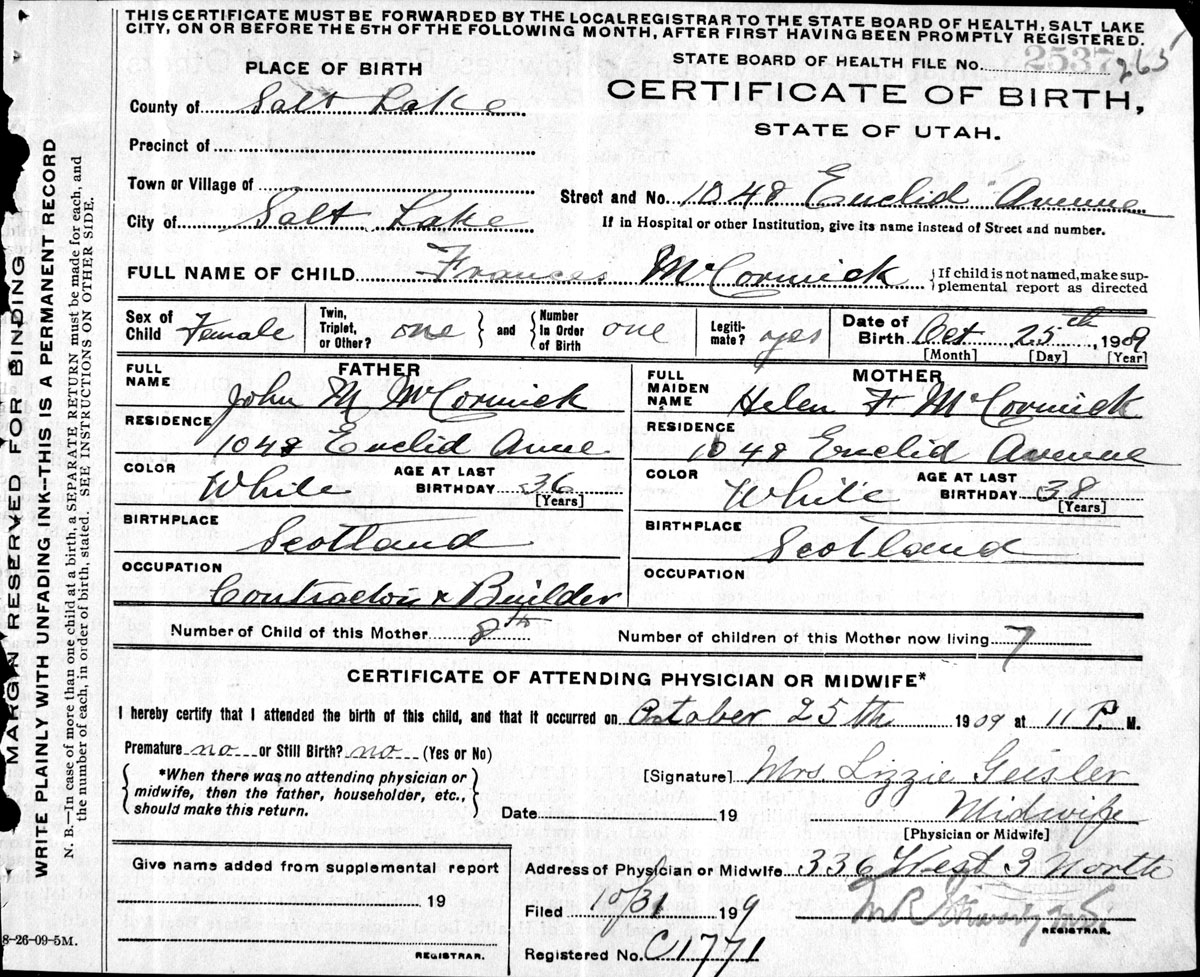 THIS CERTIFICATE MUST BE FORWARDED BY THE LOCALREGISTRAR TO THE STATE BOARD OF HEALTH, SALT LAKE
CITY, ON OR BEFORE THE 5TH OF THE FOLLOWING MONTH, AFTER FIRST HAVING BEEN PROMPTLY REGISTERED.
STATE BOARD OF HEALTH FILE NO. 2537 265
PLACE OF BIRTH
CERTIFICATE OF BIRTH,
STATE OF UTAH.
County of Salt Lake
Precinct of
Town or Village of
Street and No. 1048 Euclid Avenue
City of Salt Lake
If in Hospital or other Institution, give its name instead of Street and number.
FULL NAME OF CHILD Frances McCormick
If child is not named, make sup-
plemental report as directed
Sex of Child Female
Twin, Triplet, or Other? one and Number In Order of Birth one
Legiti-mate? yes
Date of Birth Oct 25th, 1909
[Month] [Day] [Year]
FATHER
FULL NAME John M McCormick
RESIDENCE
1048 Euclid Avnue
COLOR White AGE AT LAST BIRTHDAY 36
[Years]
BIRTHPLACE
Scotland
OCCUPATION
Contractor & Builder
MOTHER
FULL MAIDEN NAME Helen F McCormick
RESIDENCE
1048 Euclid Avenue
COLOR White AGE AT LAST BIRTHDAY 38
[Years]
BIRTHPLACE
Scotland
OCCUPATION
Number of Child of this Mother 8th Number of children of this Mother now living 7
CERTIFICATE OF ATTENDING PHYSICIAN OR MIDWIFE*
I hereby certify that I attended the birth of this child, and that it occurred on October 25th 1909 at 11 P. M.
Premature no or Still Birth? no (Yes or No)
*When there was no attending physician or
midwife, then the father, householder, etc.,
should make this return.
[Signature] Mrs Lizzie Geisler
Date 19 Midwife
[Physician or Midwife]
Give name added from supplemental report
19
REGISTRAR.
Address of Physician or Midwife 336 West 3 North
Filed 10/31 199
REGISTRAR.
Registered No. C1771
8-26-09-5M.
MARGIN RESERVED FOR BINDING
WRITE PLAINLY WITH UNFADING INK--THIS IS A PERMANENT RECORD
N. B.—In case of more than one child at a birth, a SEPARATE RETURN must be made for each, and
the number of each, in order of birth, stated. SEE INSTRUCTIONS ON OTHER SIDE.